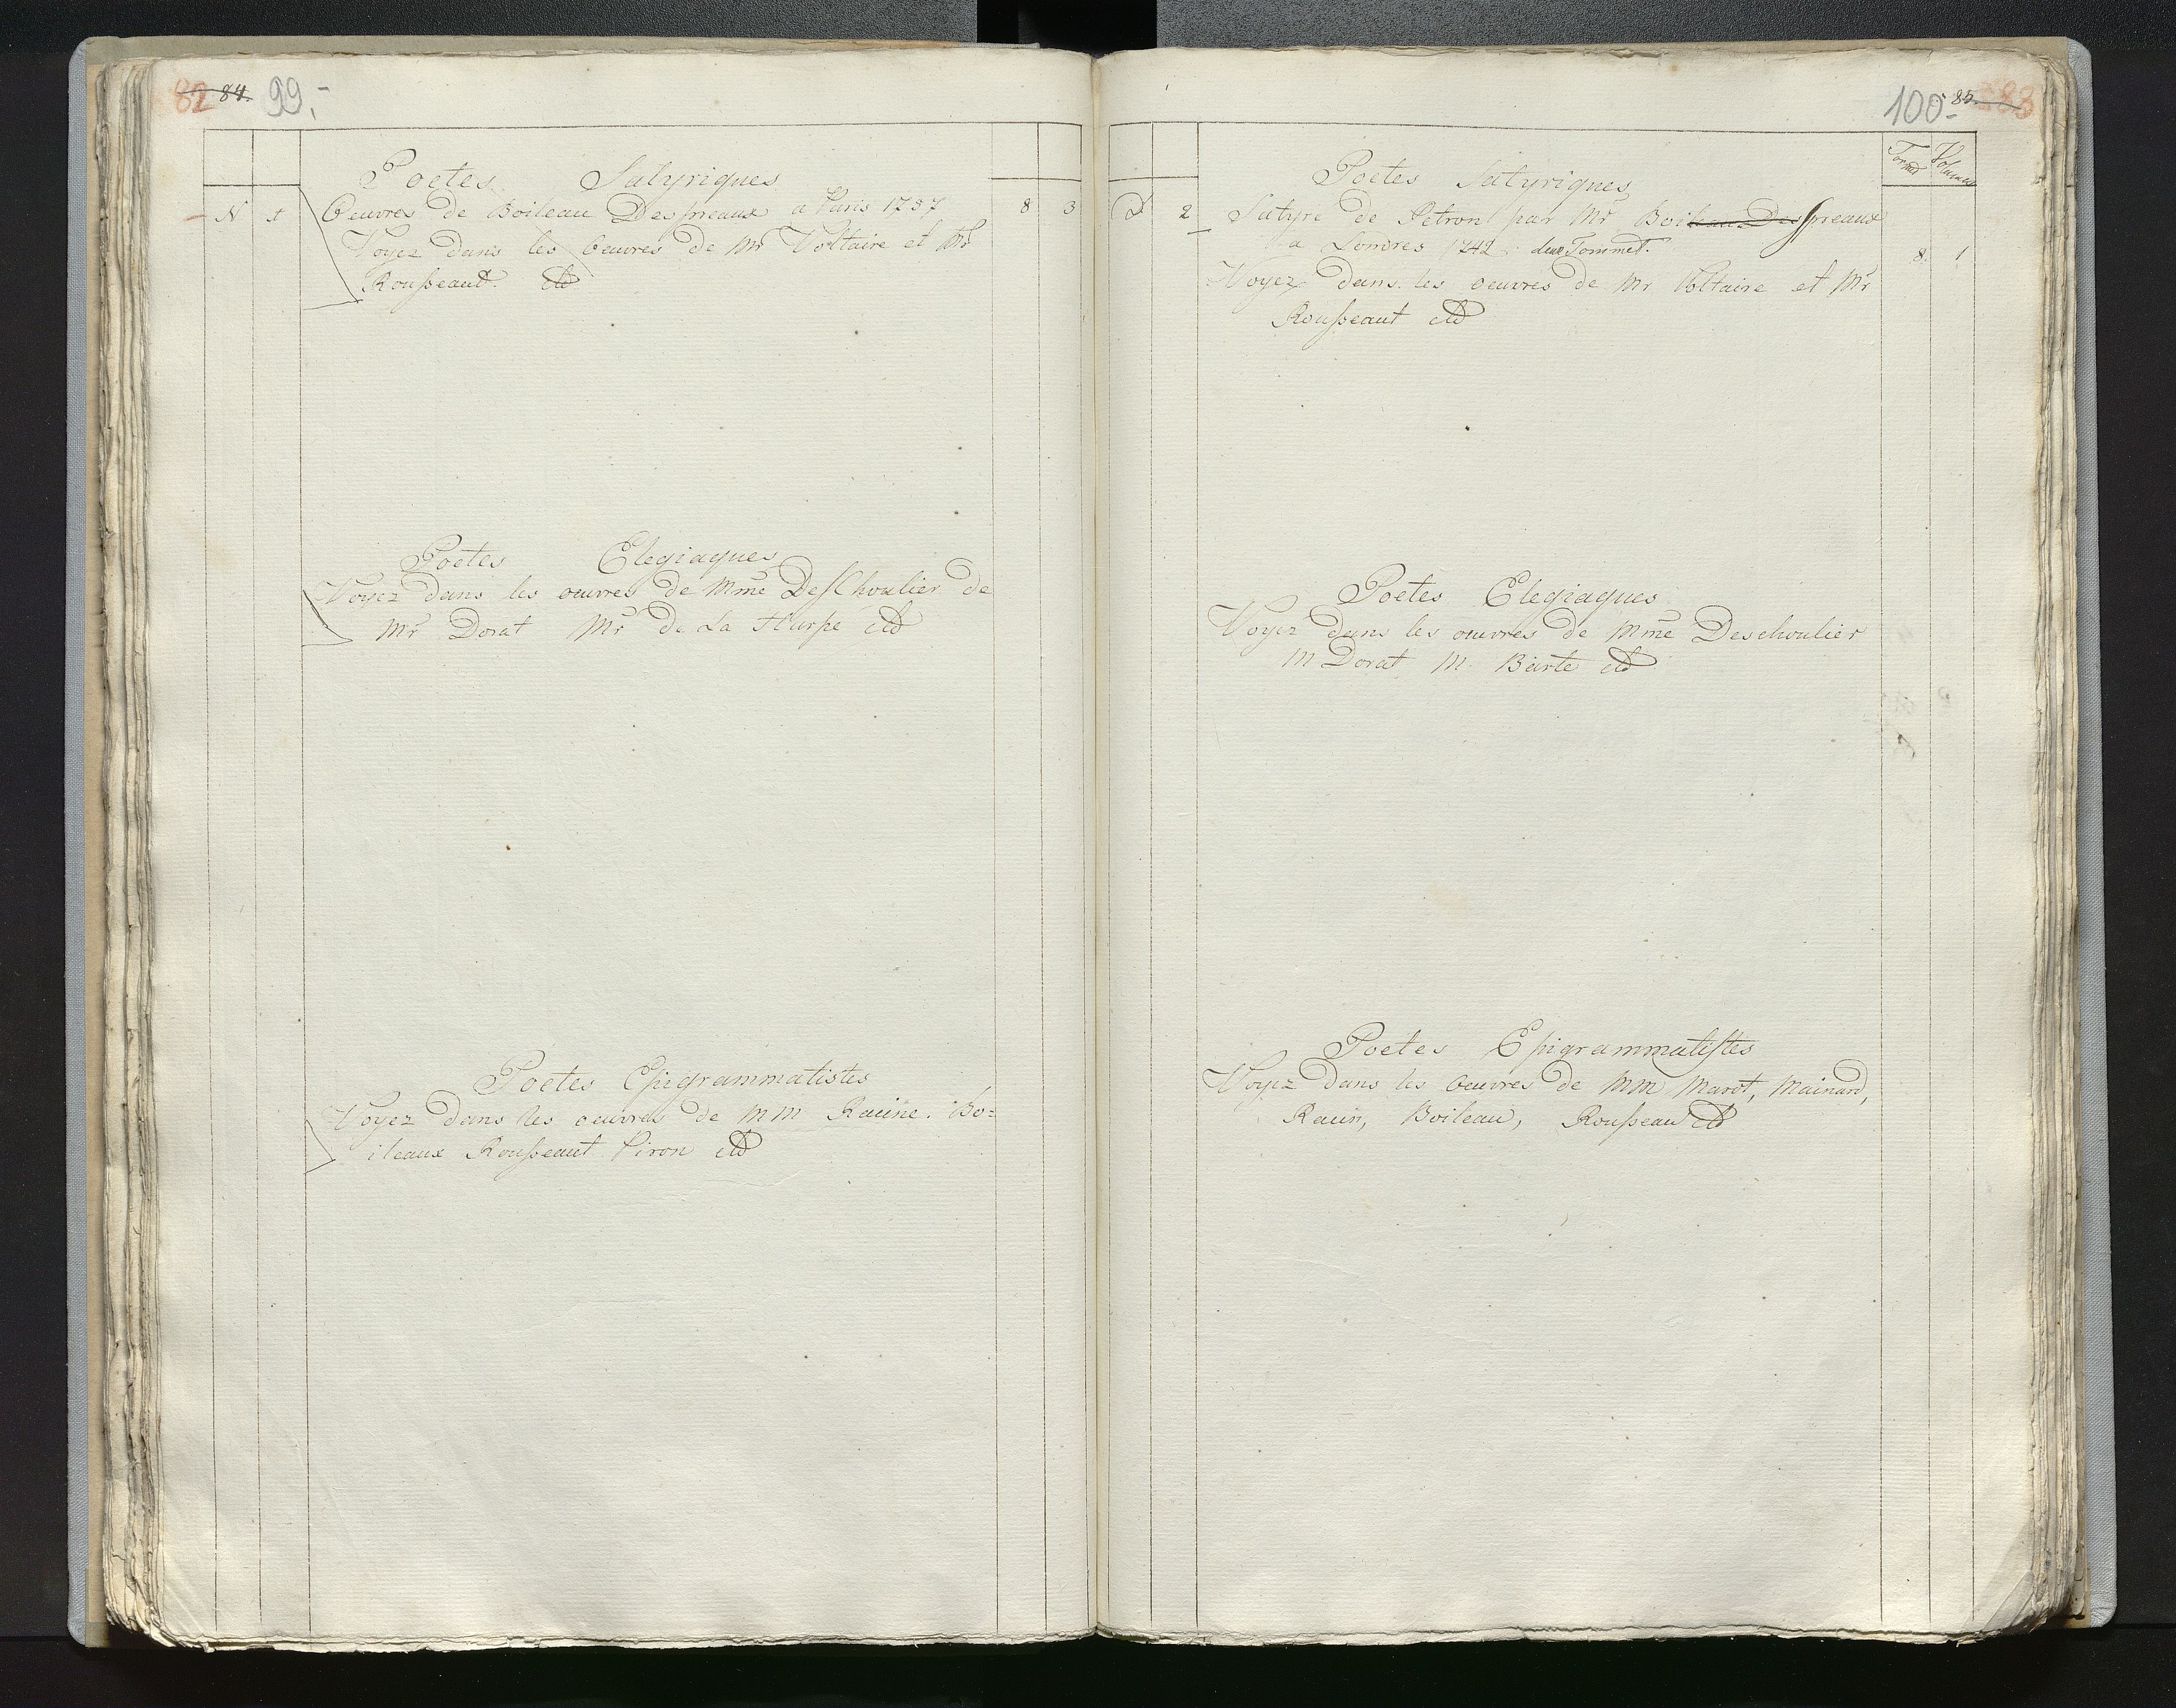 82 84. 99.-
Poetes Satyriques
N 1 Oeuvres de Boileau Despreaux a Paris 1757 8 3
Voyez dans les Oeuvres de Mr Voltaire et Mr
Rousseaut. etc
Poetes Elegiaques
Voyez dans les œuvres de Mme DesChoulier de
Mr Dorat Mr de La Harpe etc
Poetes Epigrammatistes
Voyez dans les œuvres de MM Racine. Bo=
ileaux Rousseaut Piron etc
100.- 85. 83
Poetes Satyriques
Format Volumes
2 Satyre de Petron par Mr Boileau Despreaux
a Londres 1742 deux Tommes. 8. 1
Voyez dans les oeuvres de Mr Voltaire et Mr
Rousseaut etc
Poetes Elegiaques
Voyez dans les œuvres de Mme Deschoulier
M Dorat M. Barte etc
Poetes Epigrammatistes
Voyez dans les Oeuvres de MM Marot, Mainard,
Racin, Boileau, Rousseau etc